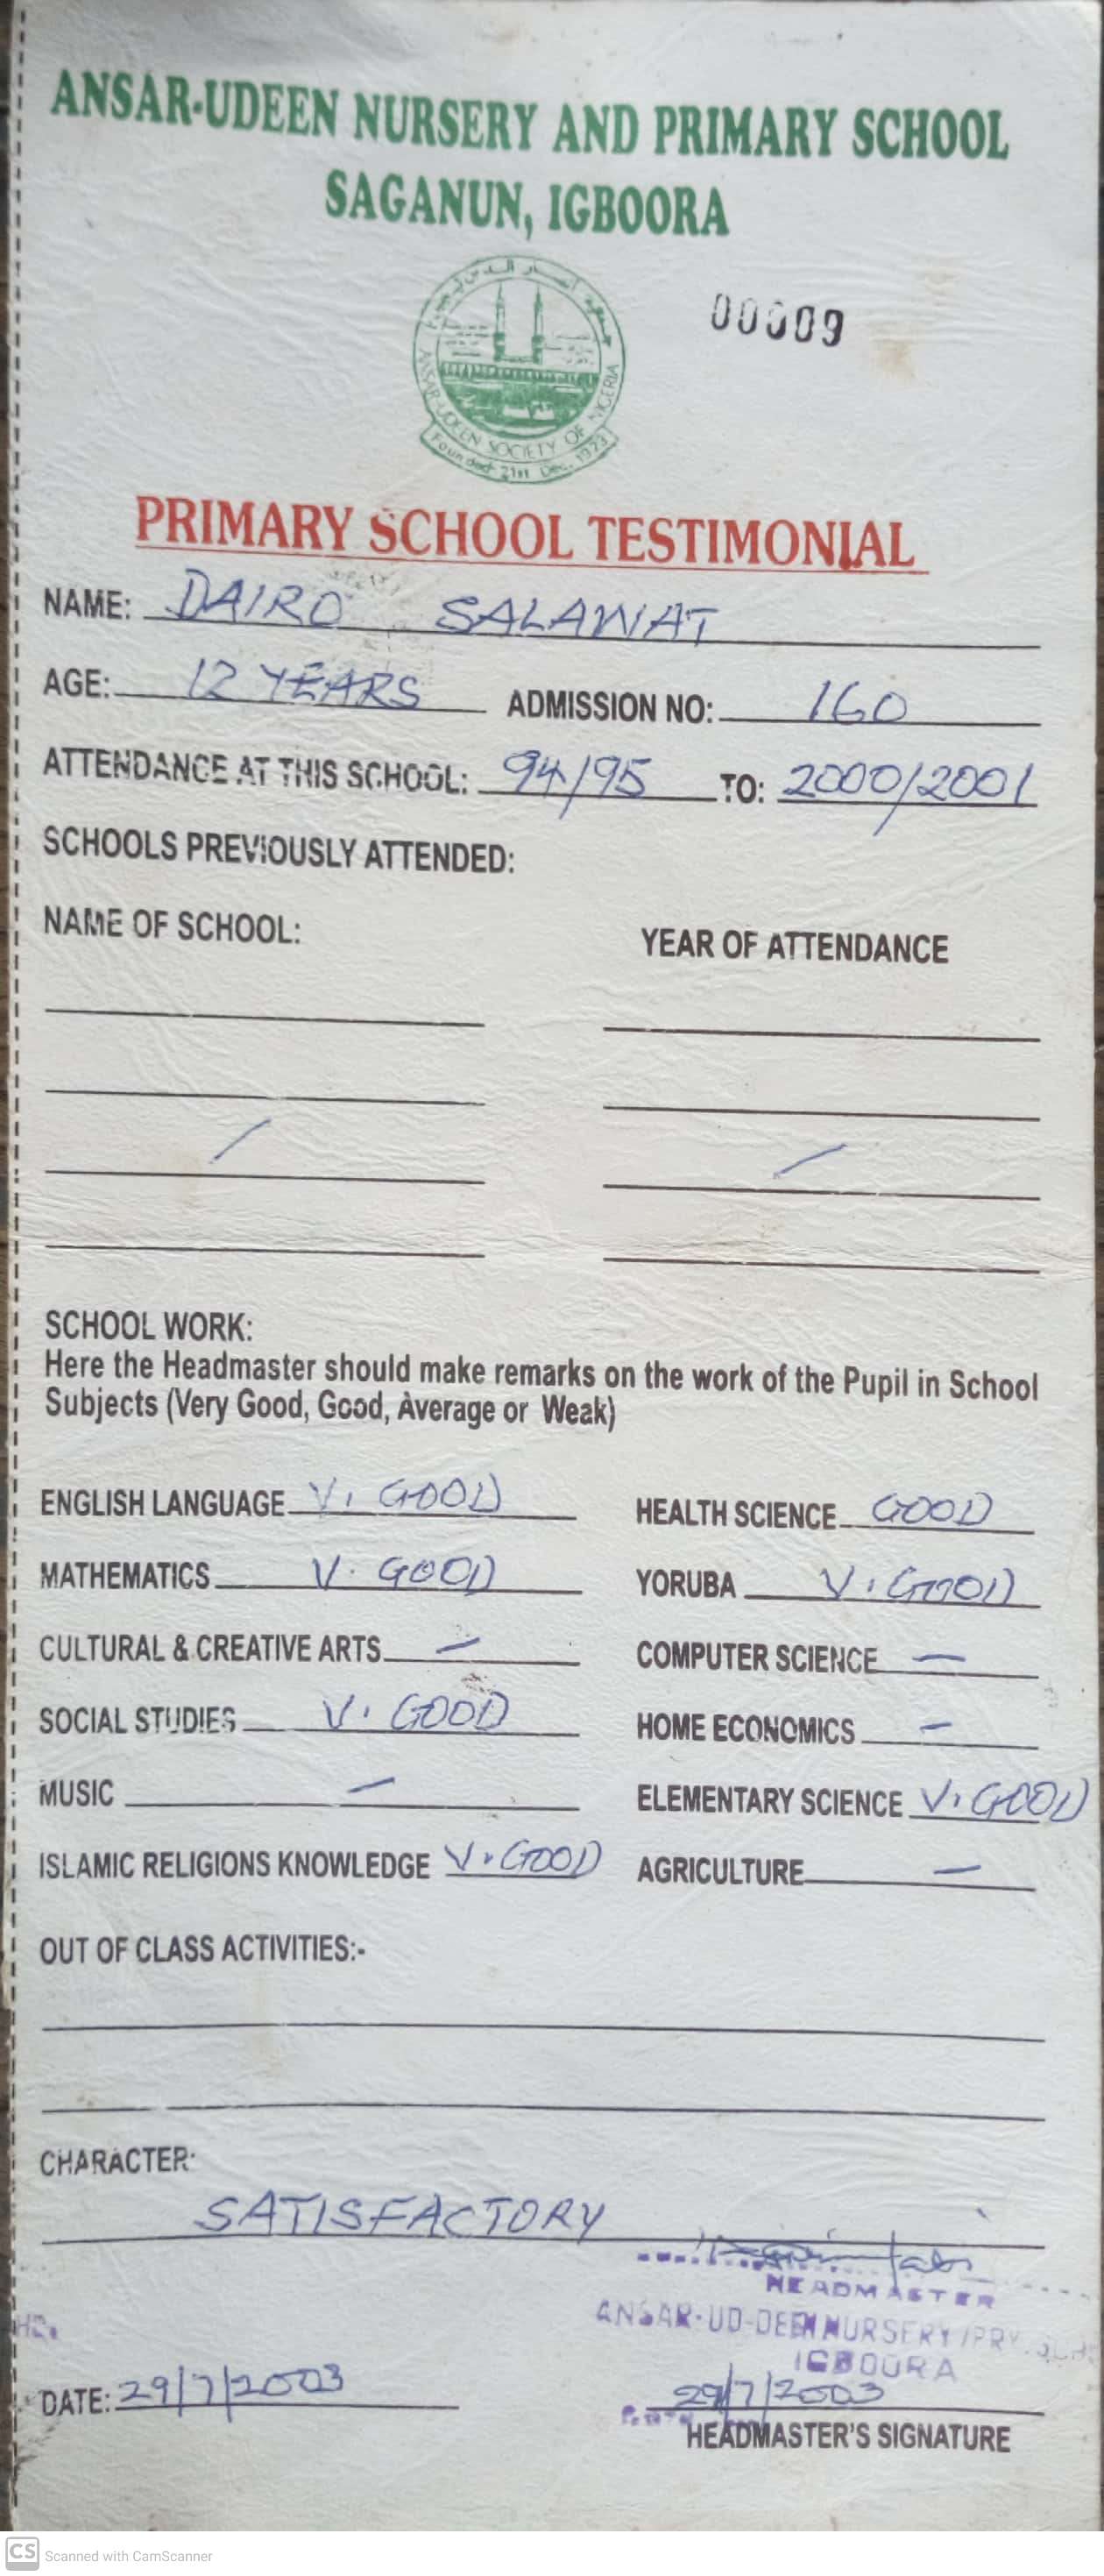 ANSAR-UDEEN NURSERY AND PRIMARY SCHOOL
SAGANUN, IGBOORA
00009
ANSAR-UDEEN SOCIETY OF NIGERIA
Founded 21st Dec. 1923
PRIMARY SCHOOL TESTIMONIAL
NAME: DAIRO SALAWAT
AGE: 12 YEARS ADMISSION NO: 160
ATTENDANCE AT THIS SCHOOL: 94/95 TO: 2000/2001
SCHOOLS PREVIOUSLY ATTENDED:
NAME OF SCHOOL: YEAR OF ATTENDANCE
/ /
SCHOOL WORK:
Here the Headmaster should make remarks on the work of the Pupil in School
Subjects (Very Good, Good, Average or Weak)
ENGLISH LANGUAGE V. GOOD HEALTH SCIENCE GOOD
MATHEMATICS V. GOOD YORUBA V. GOOD
CULTURAL & CREATIVE ARTS — COMPUTER SCIENCE —
SOCIAL STUDIES V. GOOD HOME ECONOMICS —
MUSIC — ELEMENTARY SCIENCE V. GOOD
ISLAMIC RELIGIONS KNOWLEDGE V. GOOD AGRICULTURE —
OUT OF CLASS ACTIVITIES:-
CHARACTER:
SATISFACTORY
HEADMASTER
ANSAR-UD-DEEN NURSERY/PRY. SCH.
IGBOORA
DATE: 29/7/2003 29/7/2003
HEADMASTER'S SIGNATURE
CS Scanned with CamScanner